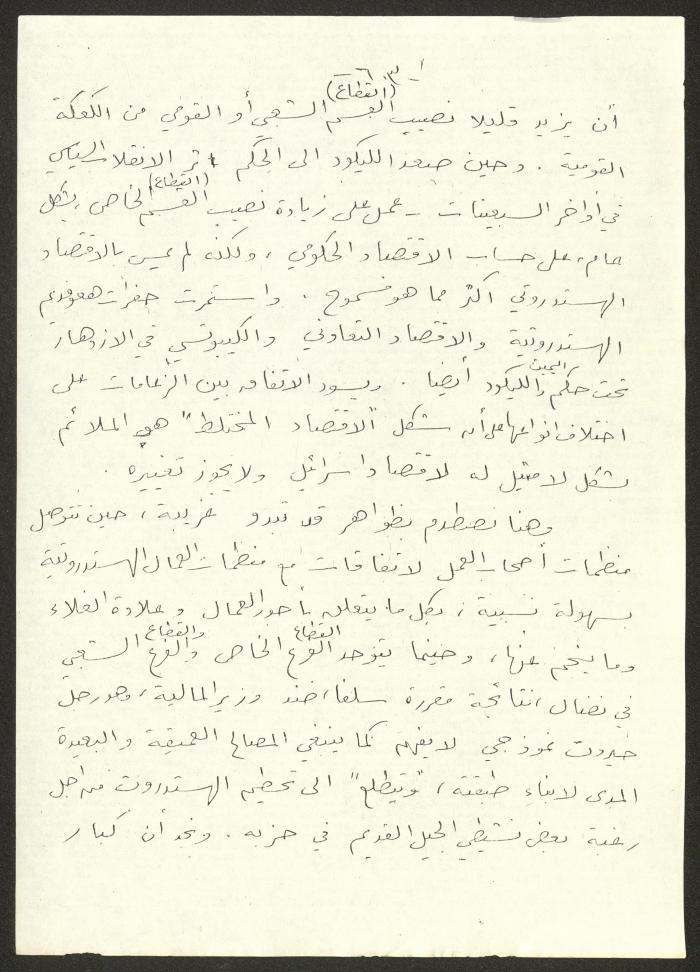 أ - ٣ - ٦
(القطاع)
أن يزيد قليلا نصيب القسم الشعبي أو القومي من الكعكة
القومية . وحين صعد الليكود الى الحكم اثر الانقلاب السياسي
(القطاع)
في أواخر السبعينات - عمل على زيادة نصيب القسم الخاص ، بشكل
عام ، على حساب الاقتصاد الحكومي ، ولكنه لم يمس بالاقتصاد
الهستدروتي اكثر مما هو مسموح . واستمرت حفرات هعوفديم
الهستدروتية والاقتصاد التعاوني والكيبوتسي في الازدهار
اليمين
تحت حكم والليكود أيضا . ويسود الاتفاق بين الزعامات على
اختلاف انواعها على أن شكل "الاقتصاد المختلط" هو الملائم
بشكل لا مثيل له لاقتصاد اسرائيل ولا يجوز تغييره .
وهنا نصطدم بظواهر قد تبدو غريبة ، حين تتوصل
منظمات أصحاب العمل لاتفاقات مع منظمات العمال الهستدروتية
بسهولة نسبية ، بكل ما يتعلق بأجور العمال وعلاوة الغلاء
القطاع والقطاع
وما ينجم عنها ، وحينما يتوحد الفرع الخاص والفرع الشعبي
في نضال ، نتائجه مقررة سلفا ، ضد وزير المالية ، وهو رجل
حيروت نموذجي لا يفهم كما ينبغي المصالح العميقة والبعيدة
المدى لابناء طبقته ، "ويتطلع" الى تحطيم الهستدروت من اجل
رغبة بعض نشيطي الجيل القديم في حزبه . ونجد أن كبار